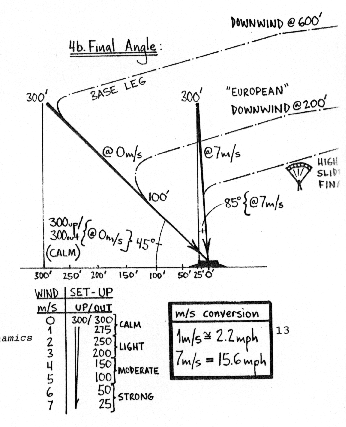 DOWNWIND @ 600'
4b. Final Angle:
BASE LEG
300'
300'
"EUROPEAN"
DOWNWIND @ 200'
@ 0m/s
@ 7m/s
HIGH
100'
85° {@ 7m/s
300 up/
300 out
{@ 0m/s} 45°
(CALM)
300' 250' 200' 150' 100' 50' 25' 0'
WIND SET-UP
m/s UP/OUT
0 300/300
1 275
CALM
2 250
3 200
LIGHT
4 150
5 100
MODERATE
6 50
7 25
STRONG
amics
m/s conversion
1m/s ≅ 2.2mph
7m/s = 15.6mph
13